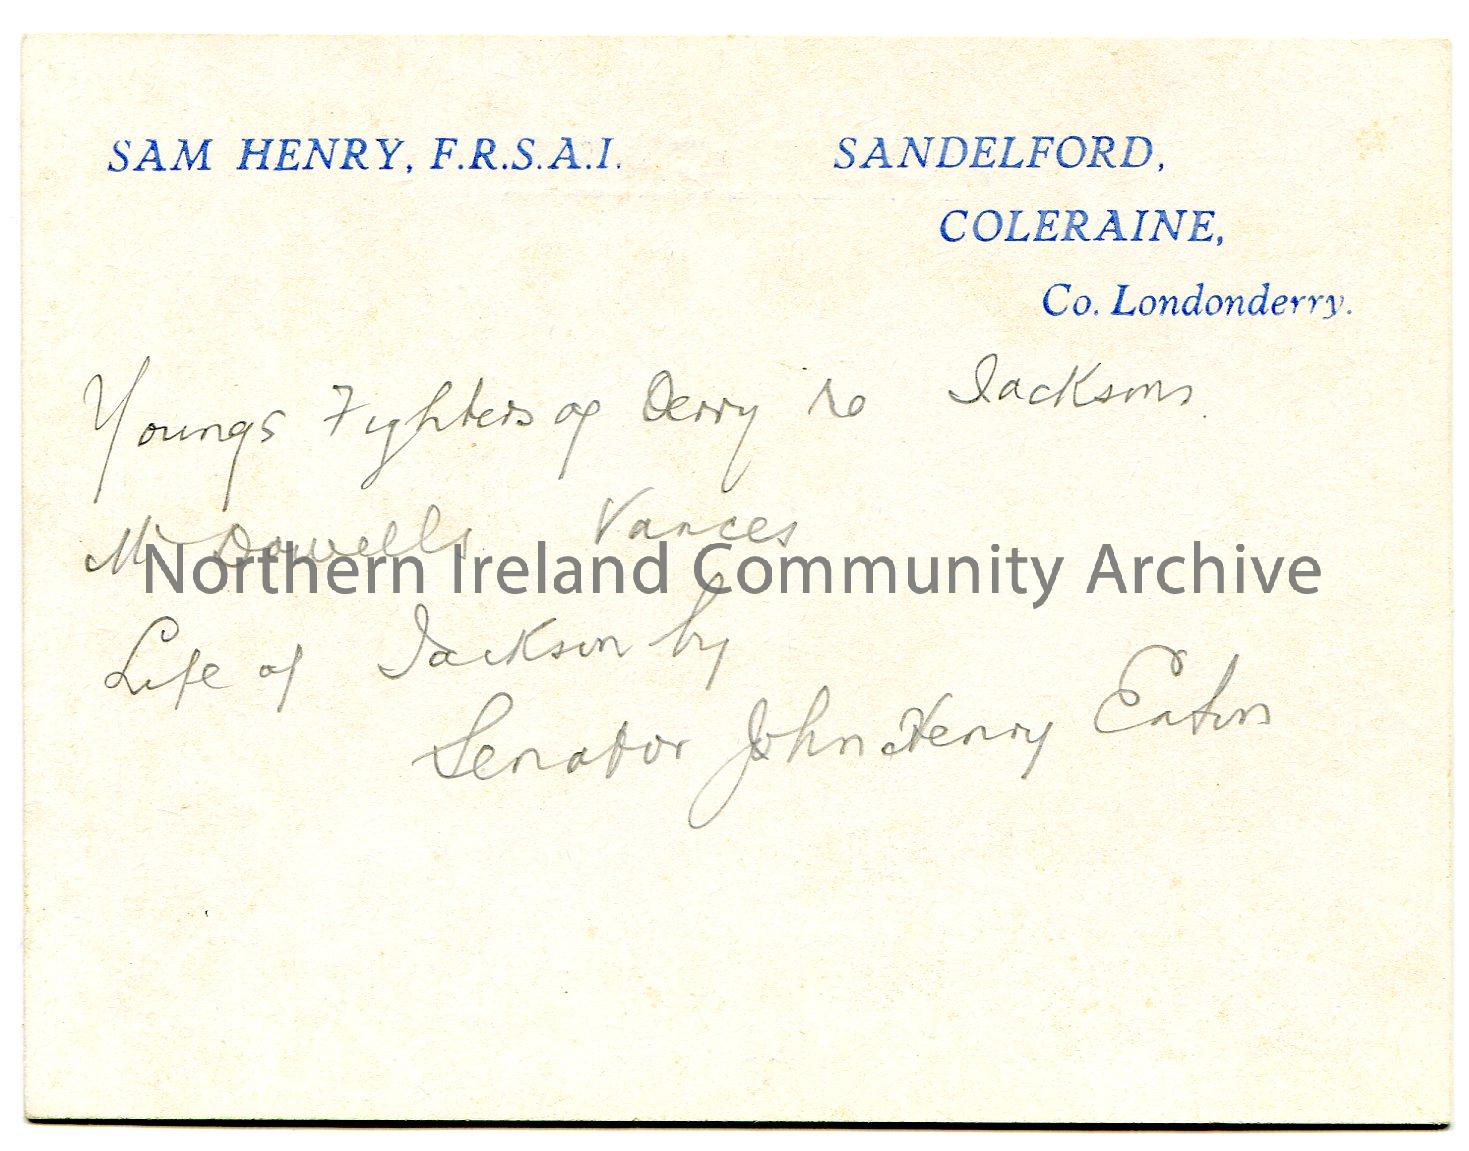 SAM HENRY, F.R.S.A.I.
SANDELFORD,
COLERAINE,
Co. Londonderry.
Youngs Fighters of Derry re Jacksons.
McDowells. Vances
Northern Ireland Community Archive
Life of Jackson by
Senator John Henry Eaton